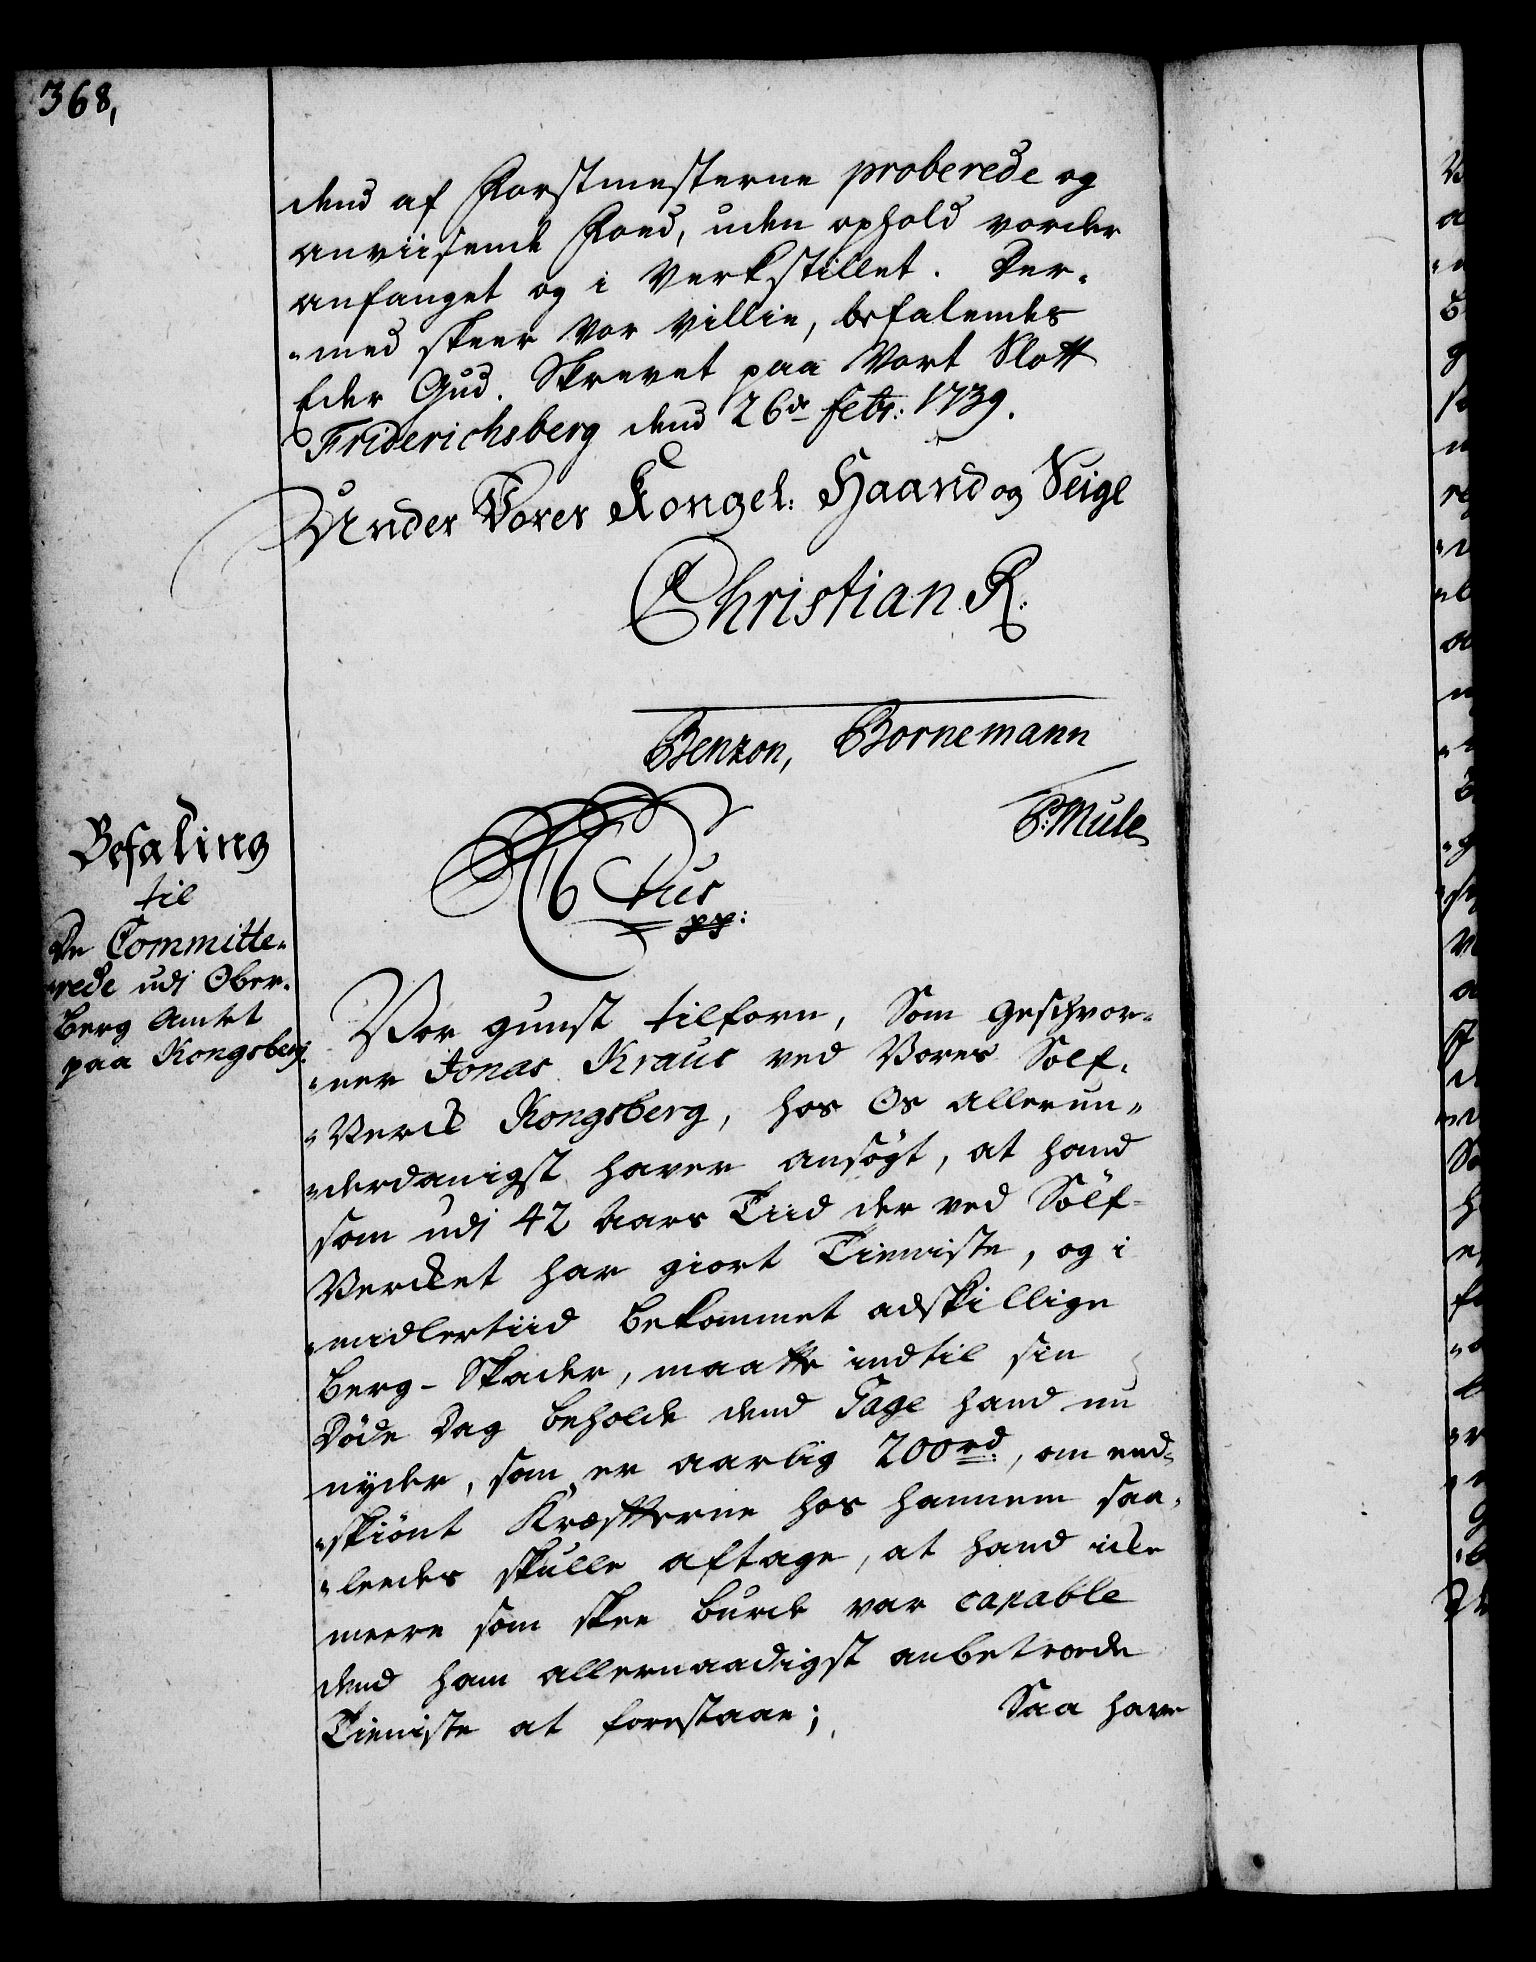 368,
dend af Forstmesterne proberede og
anviisende Foed, uden ophold vorder
anfanget og i Verkstillet. Der-
med skeer Vor Villie, befalendes
Eder Gud. Skrevet paa Vort Slott
Friderichsberg dend 26de febr: 1739.
Under Vores Kongel: Haand og Seigl
Christian R.
Benzon, Bornemann
P: Mule
Befaling
til
De Committe-
rede udi Ober-
berg Amtet
paa Kongsberg
Ctus
pp:
Vor gunst tilforn, Som Geschvor-
ner Jonas Kraus ved Vores Sölf-
Verck Kongsberg, hos Os allerun-
derdanigst haver ansögt, at hand
som udi 42 Aars Tiid der ved Sölf-
Vercket har giort Tienniste, og i
midlertiid bekommet adskillige
Berg-Skader, maatte indtil sin
Döde Dag beholde dend Gage hand nu
nyder, som er aarlig 200rd, om end-
skiönt Kræfterne hos hannem saa-
leedes skulle aftage, at hand icke
meere som skee burde var capable
dend ham allernaadigst anbetroede
Tieniste at forestaae;
Saa have